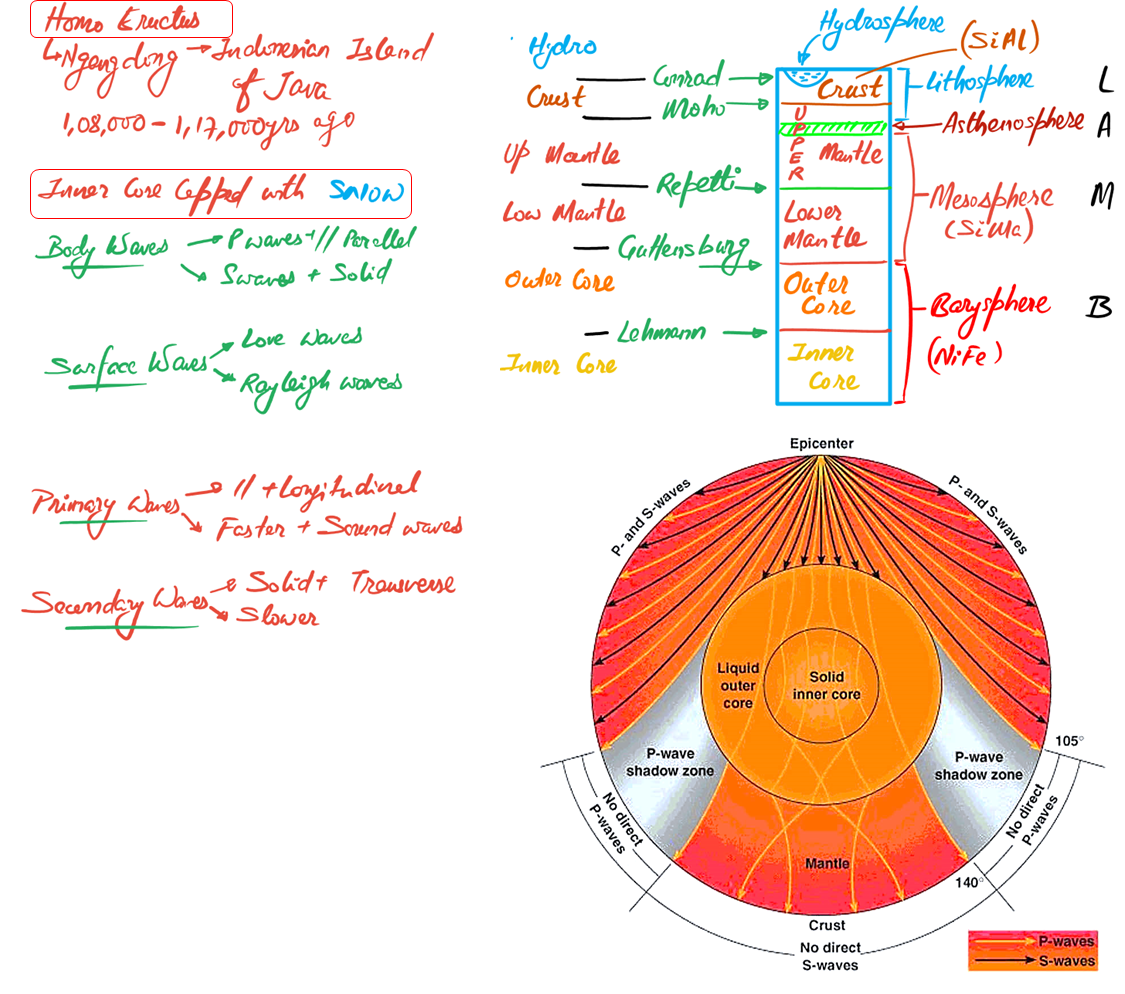 Homo Erectus
↳ Ngangdong → Indonesian Island
of Java
1,08,000 – 1,17,000 yrs ago
Inner Core Capped with Snow
Body Waves → P waves + // Parallel
→ S waves + Solid
Surface Waves → Love Waves
→ Rayleigh waves
Primary Waves → // + Longitudinal
→ Faster + Sound waves
Secondary Waves → Solid + Transverse
→ Slower
Hydro
Conrad →
Crust
Moho →
Up Mantle
Repetti →
Low Mantle
Guttensburg →
Outer Core
Lehmann →
Inner Core
Hydrosphere
(SiAl)
Crust
Lithosphere
L
UPPER
Mantle
Asthenosphere
A
Lower
Mantle
Mesosphere
(SiMa)
M
Outer
Core
Barysphere
(NiFe)
B
Inner
Core
Epicenter
P- and S-waves
P- and S-waves
Liquid
outer
core
Solid
inner core
P-wave
shadow zone
P-wave
shadow zone
105°
No direct
P-waves
No direct
P-waves
Mantle
140°
Crust
No direct
S-waves
P-waves
S-waves